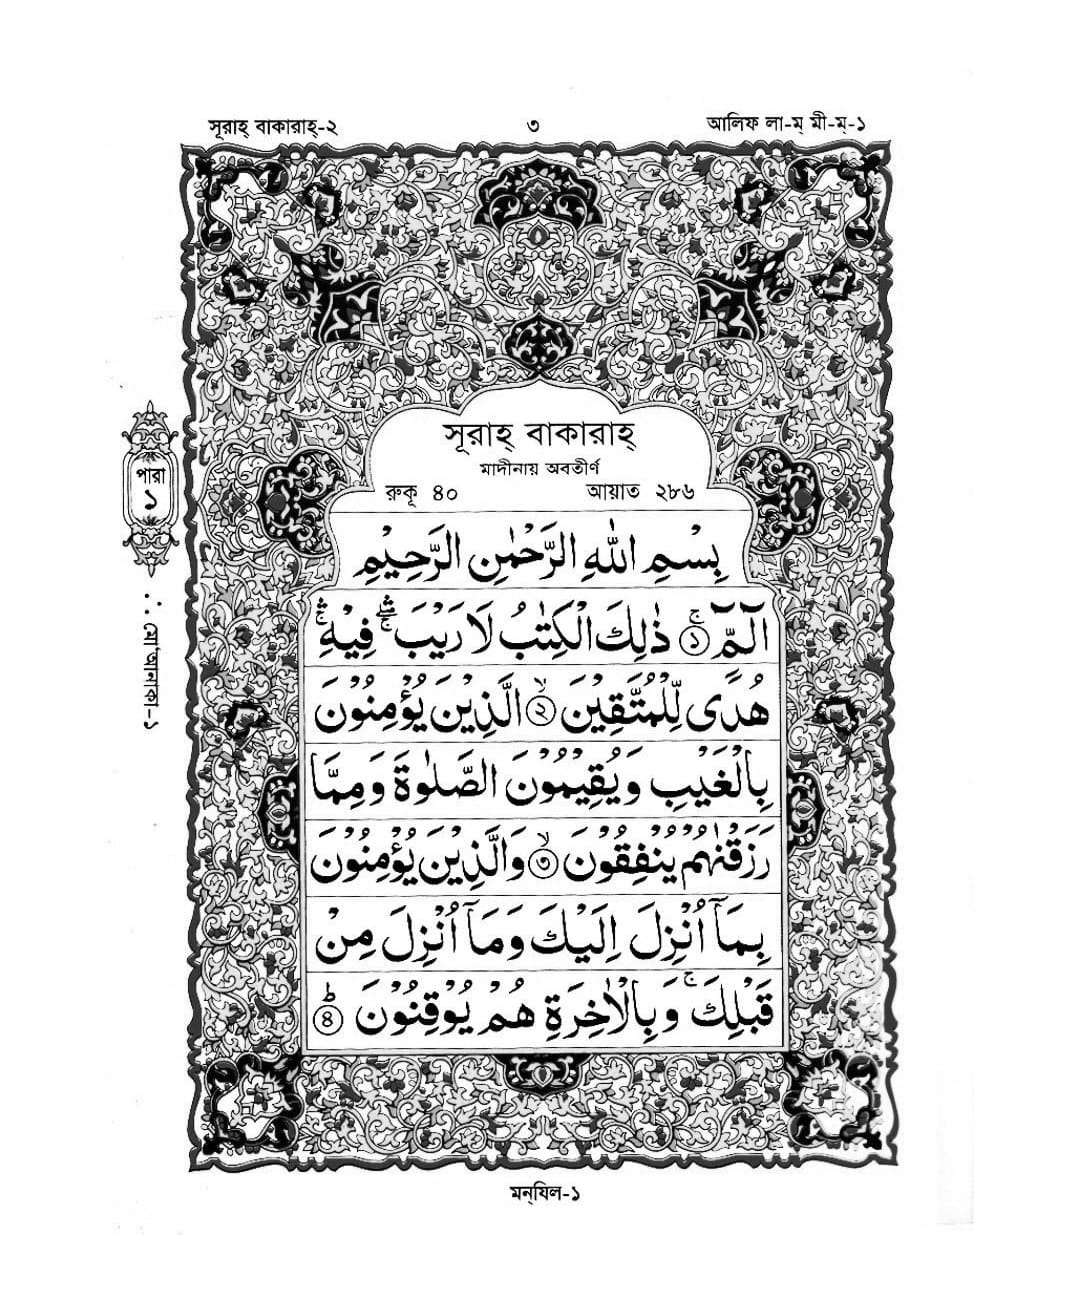 সূরাহ্ বাকারাহ্-২
৩
আলিফ লা-ম্ মী-ম্-১
সূরাহ্ বাকারাহ্
মাদীনায় অবতীর্ণ
রুকূ ৪০
আয়াত ২৮৬
بِسْمِ اللهِ الرَّحْمٰنِ الرَّحِيْمِ
الٓمّٓ ۚ ১ ذٰلِكَ الْكِتٰبُ لَا رَيْبَ ۛۚ فِيْهِ ۛۚ
هُدًى لِّلْمُتَّقِيْنَ ۙ ২ الَّذِيْنَ يُؤْمِنُوْنَ
بِالْغَيْبِ وَيُقِيْمُوْنَ الصَّلٰوةَ وَمِمَّا
رَزَقْنٰهُمْ يُنْفِقُوْنَ ۙ ৩ وَالَّذِيْنَ يُؤْمِنُوْنَ
بِمَآ اُنْزِلَ اِلَيْكَ وَمَآ اُنْزِلَ مِنْ
قَبْلِكَ ۚ وَبِالْاٰخِرَةِ هُمْ يُوْقِنُوْنَ ؕ ৪
পারা
১
∴ মো'আনাকা-১
মন্‌যিল-১